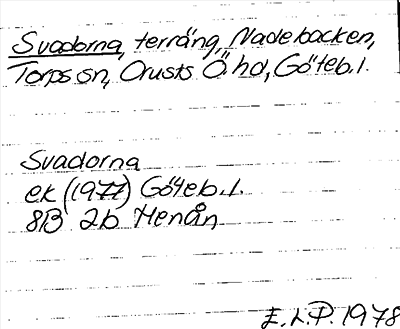 Svadorna, terräng, Nadebacken,
Torps sn, Orusts Ö hd, Göteb. l.
Svadorna
ek (1977) Göteb. l.
8B 2b Henån
E. L. P. 1978